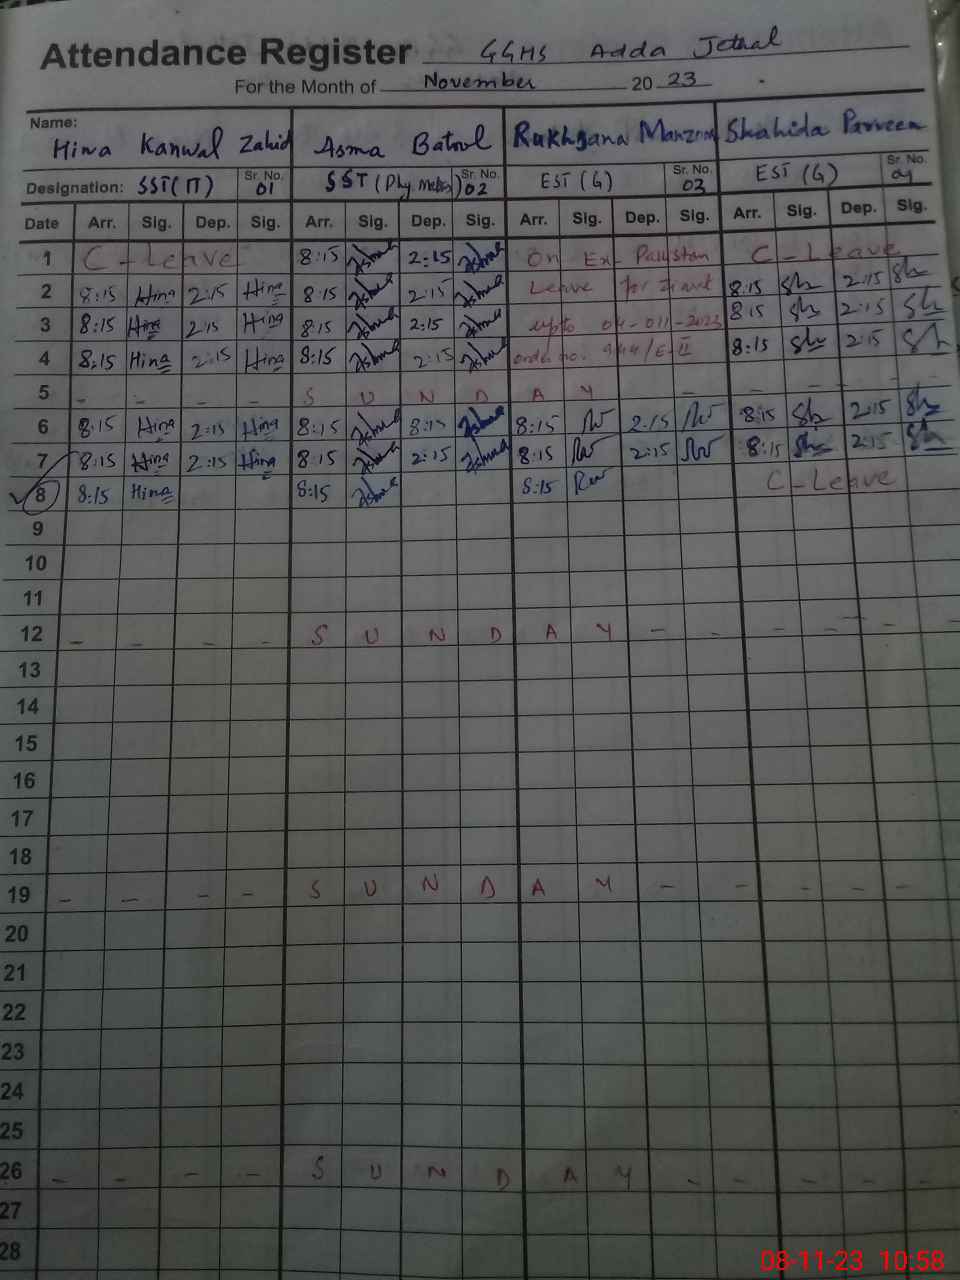 Attendance Register GGHS Adda Jethal
For the Month of November 20 23
Name: Hina Kanwal Zahid Asma Batool Rukhsana Manzoor Shahida Parveen
Designation: SST(IT) Sr. No. 01 SST (Phy. Sr. No. 02 EST (G) Sr. No. 03 EST (G) Sr. No. 04
Date Arr. Sig. Dep. Sig. Arr. Sig. Dep. Sig. Arr. Sig. Dep. Sig. Arr. Sig. Dep. Sig.
1 C - Leave 8:15 Asma 2:15 Asma On Ex- Pakistan C - Leave
2 8:15 Hina 2:15 Hina 8:15 Asma 2:15 Asma Leave for 8:15 Sh 2:15 Sh
3 8:15 Hina 2:15 Hina 8:15 Asma 2:15 Asma upto 04-011-2023 8:15 Sh 2:15 Sh
4 8:15 Hina 2:15 Hina 8:15 Asma 2:15 Asma order no. /E-II 8:15 Sh 2:15 Sh
5 - - - - S U N D A Y - - - - - -
6 8:15 Hina 2:15 Hina 8:15 Asma 8:15 Asma 8:15 2:15 8:15 Sh 2:15 Sh
7 8:15 Hina 2:15 Hina 8:15 Asma 2:15 Asma 8:15 2:15 8:15 Sh 2:15 Sh
8 8:15 Hina 8:15 Asma 8:15 C - Leave
9
10
11
12 - - - - S U N D A Y - - - - - -
13
14
15
16
17
18
19 - - - - S U N D A Y - - - - -
20
21
22
23
24
25
26 - - - - S U N D A Y - - - - - -
27
28
08-11-23 10:58